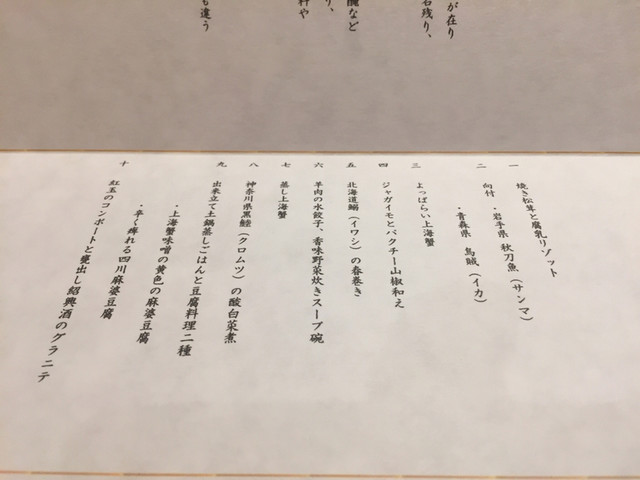 が在り
名残り、
醂など
り、
料や
も違う
一 焼き松茸と腐乳リゾット
二 向付 ・岩手県 秋刀魚（サンマ）
・青森県 烏賊（イカ）
三 よっぱらい上海蟹
四 ジャガイモとパクチー山椒和え
五 北海道鰯（イワシ）の春巻き
六 羊肉の水餃子、香味野菜炊きスープ碗
七 蒸し上海蟹
八 神奈川県黒鯥（クロムツ）の酸白菜煮
九 出来立て土鍋蒸しごはんと豆腐料理二種
・上海蟹味噌の黄色の麻婆豆腐
・辛く痺れる四川麻婆豆腐
十 紅玉のコンポートと甕出し紹興酒のグラニテ